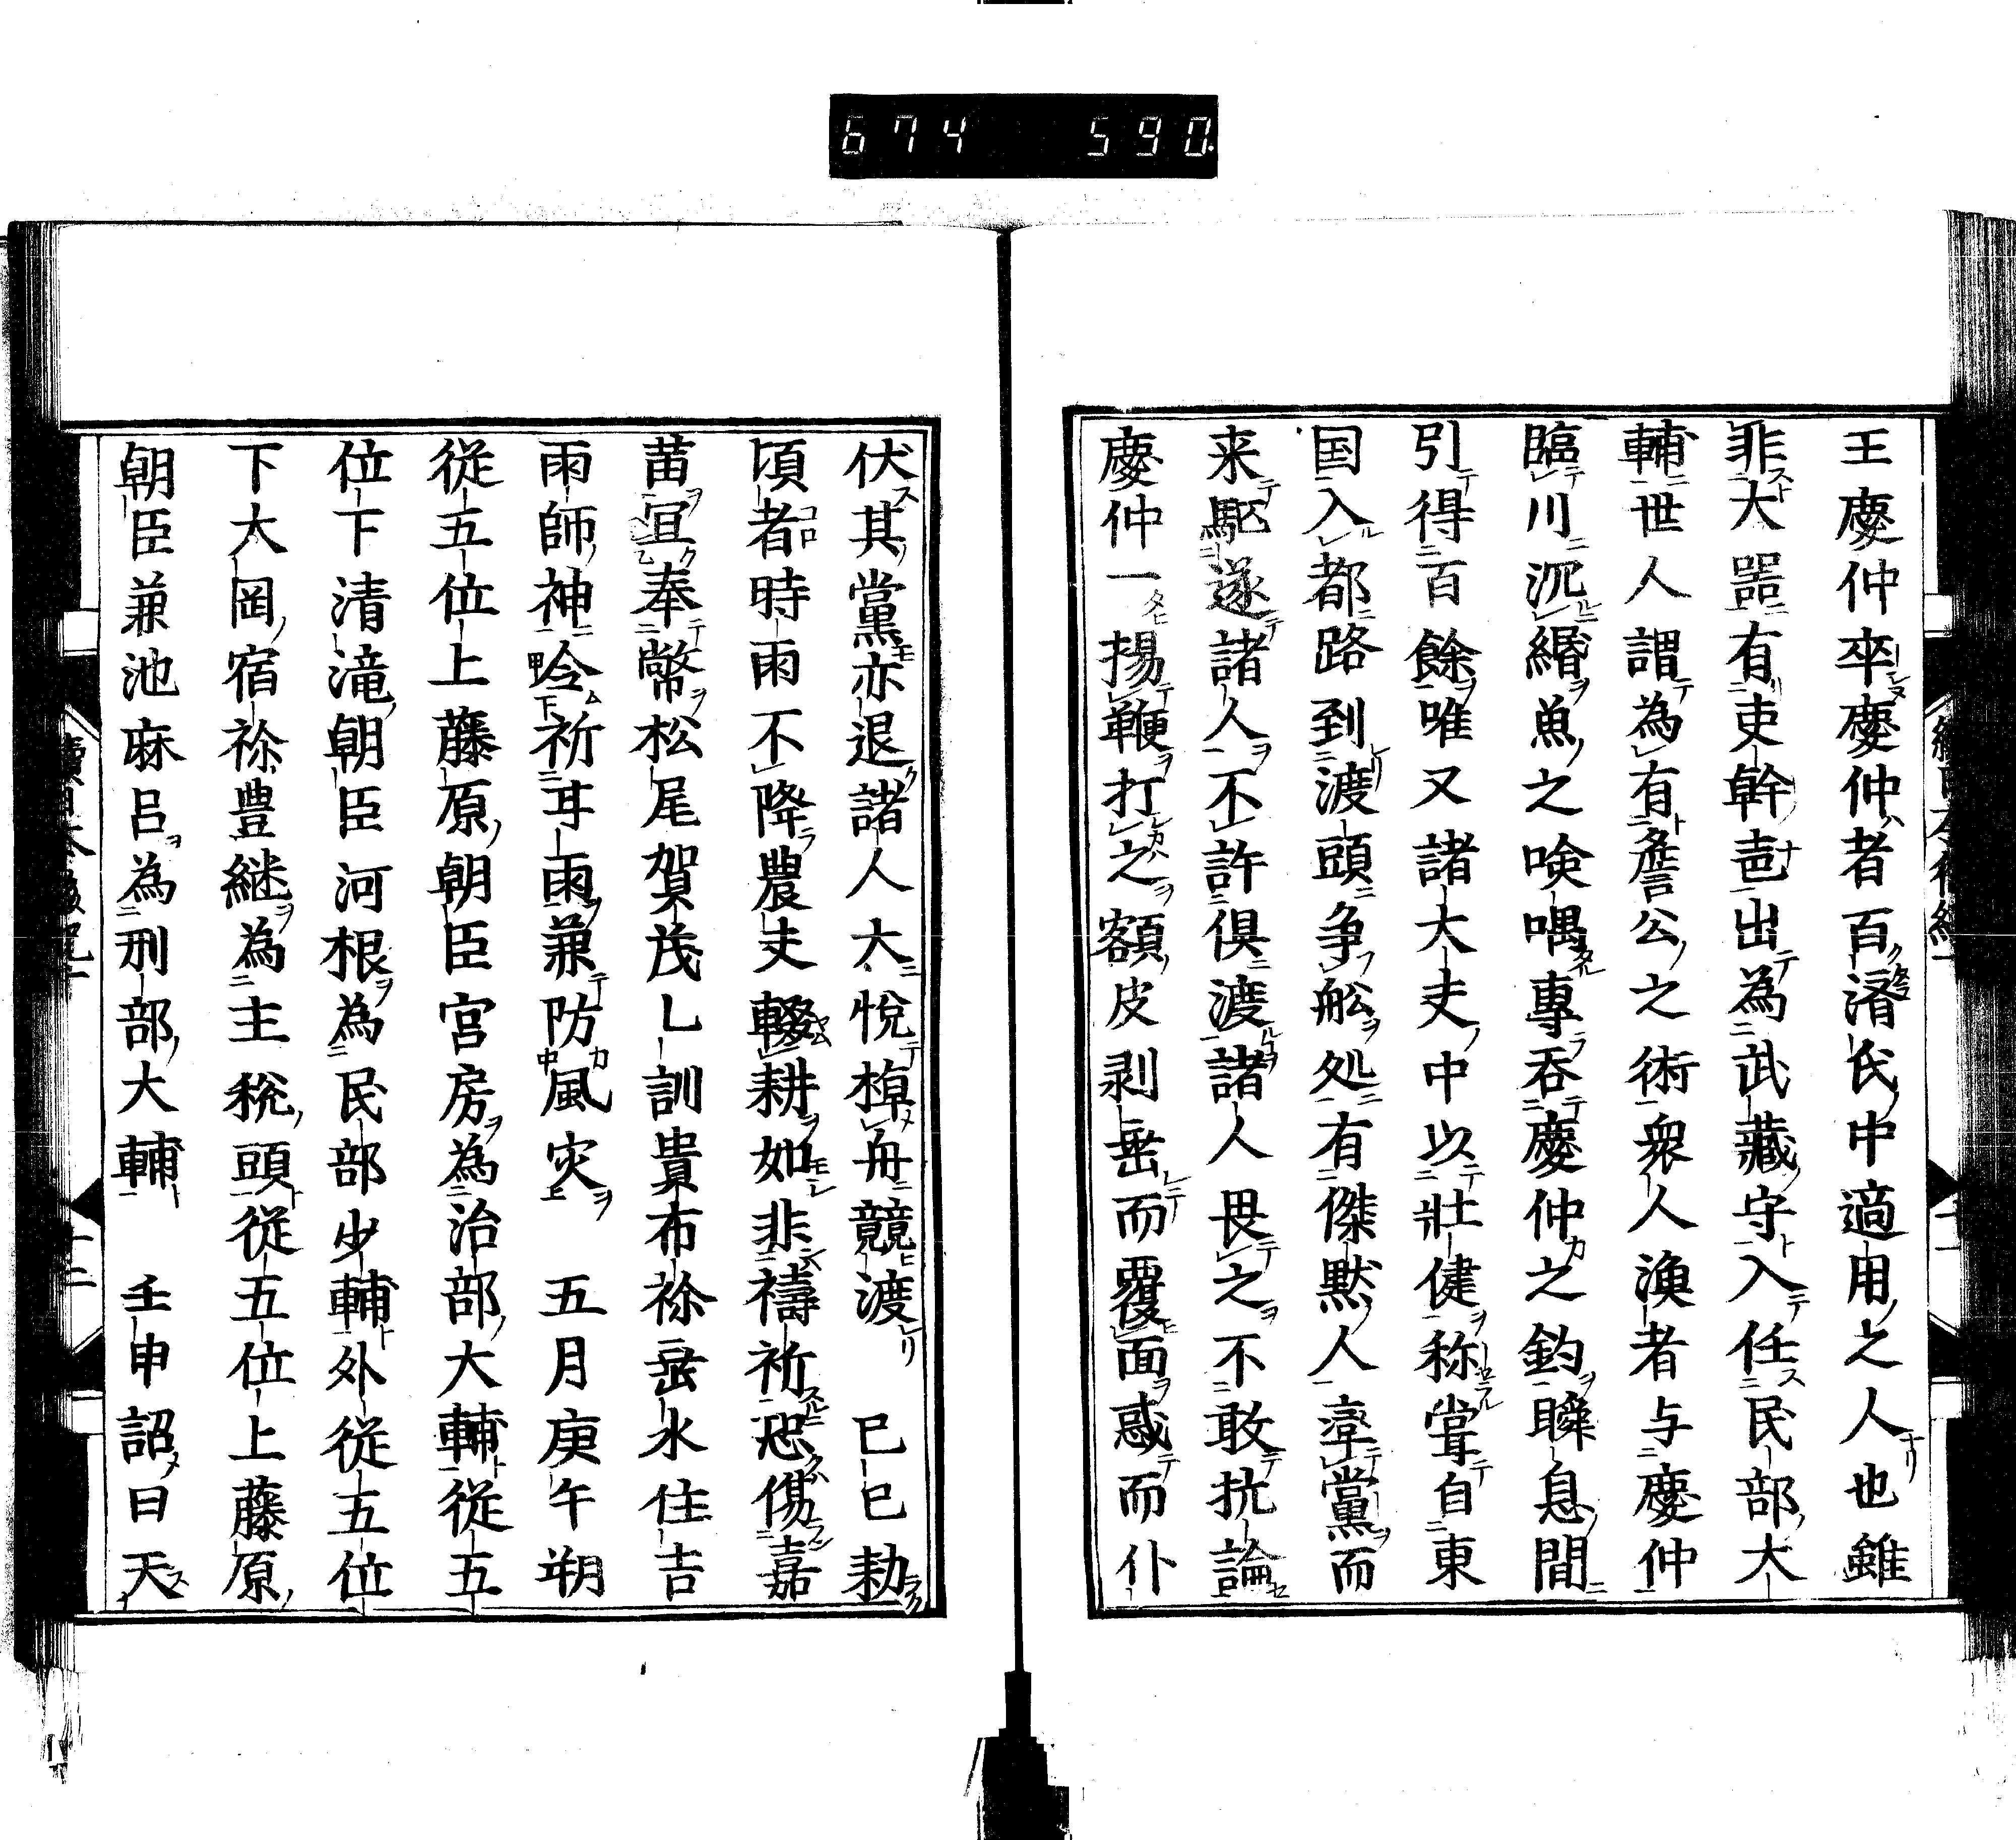 674 590
王慶仲卒慶仲者百済氏中適用之人也雖
非大器有吏幹㐌出為武蔵守入任民部大
輔世人謂為有詹公之術衆人漁者与慶仲
臨川沉緡魚之喚喁專呑慶仲之釣瞬息間
引得百餘唯又諸大夫中以壮健称甞自東
国入都路到渡頭争舩処有傑黙人率黨而
来駈遂諸人不許倶渡諸人畏之不敢抗論
慶仲一揚鞭打之額皮剥垂而覆面惑而仆
伏其黨亦退諸人大悦棹舟競渡　已巳勅
頃者時雨不降農夫輟耕如非禱祈恐傷嘉
苗冝奉幣松尾賀茂乚訓貴布祢垂水住吉
雨師神令祈甘雨兼防風灾　五月庚午朔
従五位上藤原朝臣宮房為治部大輔従五
位下清滝朝臣河根為民部少輔外従五位
下大岡宿祢豊継為主税頭従五位上藤原
朝臣兼池麻呂為刑部大輔　壬申詔曰天